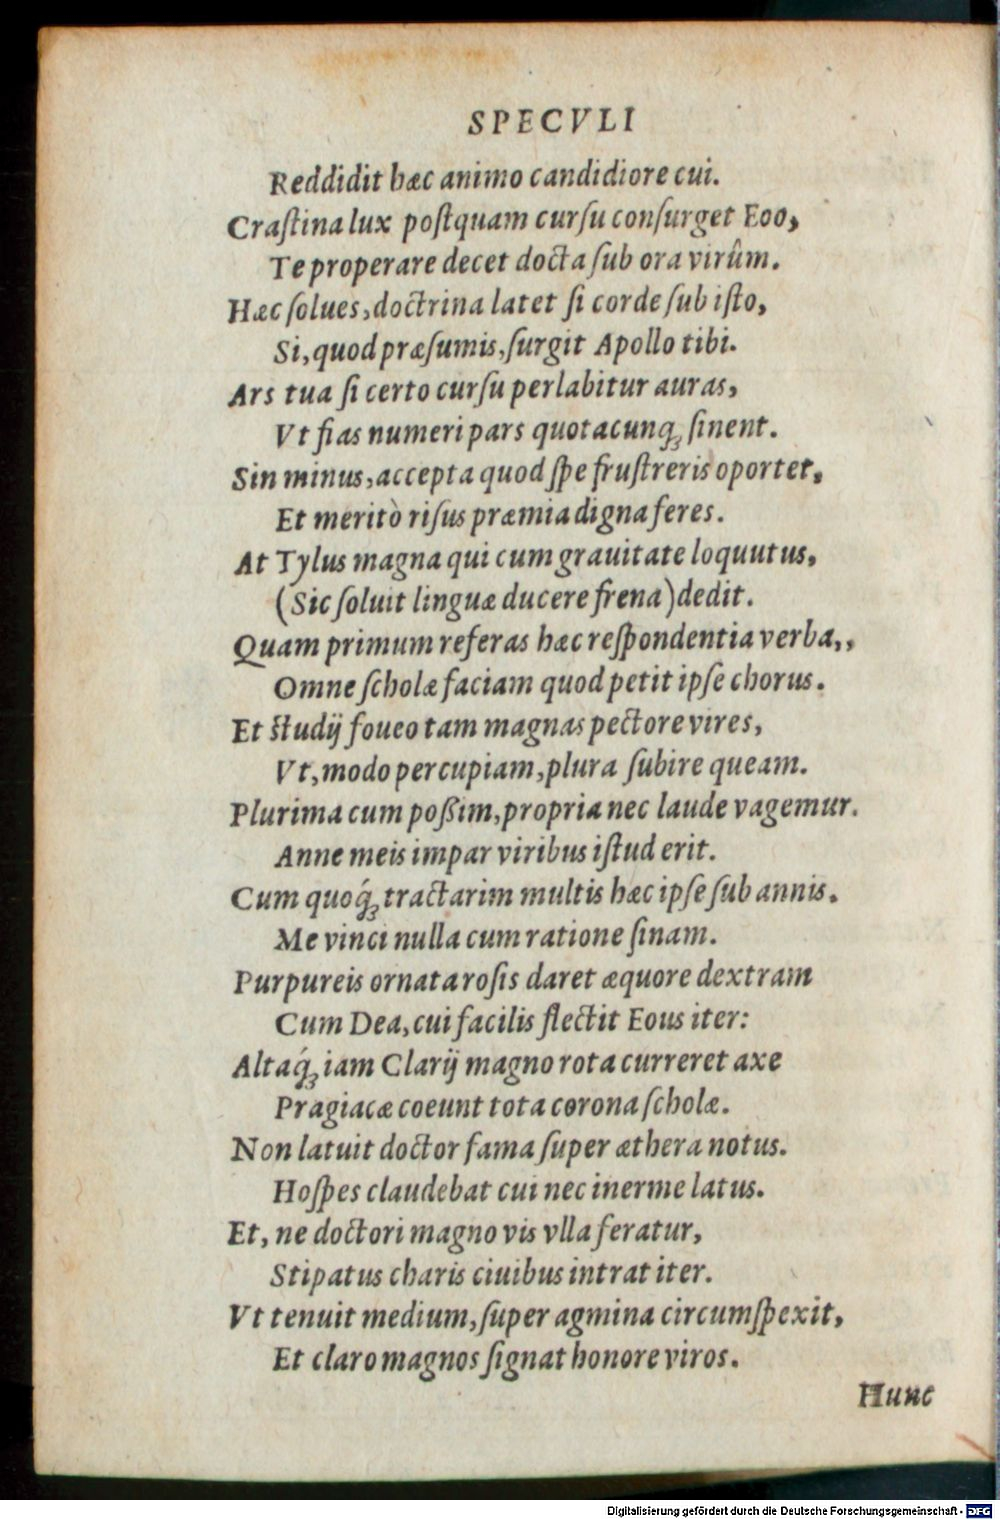 SPECVLI
Reddidit hæc animo candidiore cui.
Craſtina lux poſtquam curſu conſurget Eoo,
Te properare decet docta ſub ora virûm.
Hæc ſolues, doctrina latet ſi corde ſub iſto,
Si, quod præſumis, ſurgit Apollo tibi.
Ars tua ſi certo curſu perlabitur auras,
Vt fias numeri pars quotacunq; ſinent.
Sin minus, accepta quod ſpe fruſtreris oportet,
Et meritò riſus præmia digna feres.
At Tylus magna qui cum grauitate loquutus,
(Sic ſoluit linguæ ducere frena) dedit.
Quam primum referas hæc reſpondentia verba,,
Omne ſcholæ faciam quod petit ipſe chorus.
Et ſtudij foueo tam magnas pectore vires,
Vt, modo percupiam, plura ſubire queam.
Plurima cum poßim, propria nec laude vagemur.
Anne meis impar viribus iſtud erit.
Cum quoq́; tractarim multis hæc ipſe ſub annis.
Me vinci nulla cum ratione ſinam.
Purpureis ornata roſis daret æquore dextram
Cum Dea, cui facilis flectit Eous iter:
Altaq́; iam Clarij magno rota curreret axe
Pragiacæ coeunt tota corona ſcholæ.
Non latuit doctor fama ſuper æthera notus.
Hoſpes claudebat cui nec inerme latus.
Et, ne doctori magno vis vlla feratur,
Stipatus charis ciuibus intrat iter.
Vt tenuit medium, ſuper agmina circumſpexit,
Et claro magnos ſignat honore viros.
Hunc
Digitalisierung gefördert durch die Deutsche Forschungsgemeinschaft - DFG